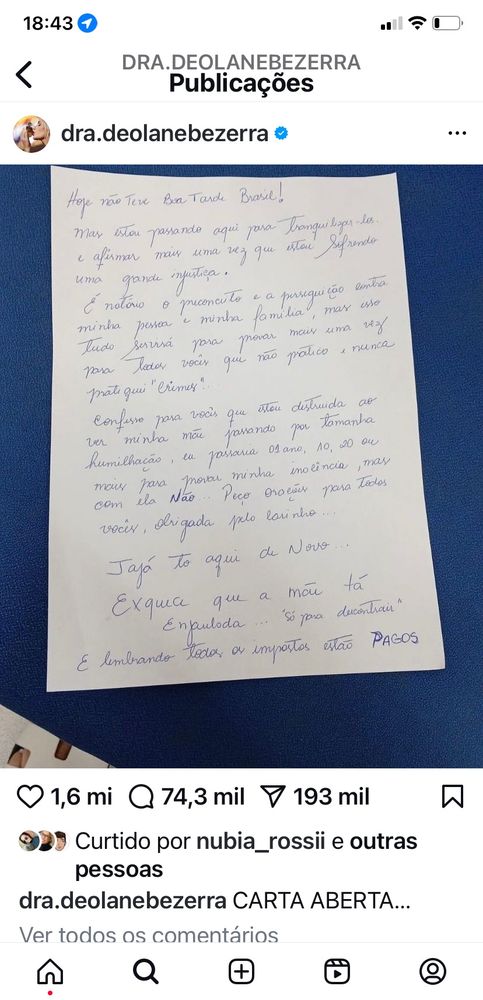 18:43
DRA.DEOLANEBEZERRA
Publicações
dra.deolanebezerra
Hoje não Teve Boa Tarde Brasil!
Mas estou passando aqui para Tranquilizar-los
e afirmar mais uma vez que estou Sofrendo
uma grande injustiça.
É notório o preconceito e a perseguição contra
minha pessoa e minha família, mas isso
tudo Servirá para provar mais uma vez
para todos vocês que não pratico e nunca
pratiquei "Crimes"...
Confesso para vocês que estou destruida ao
ver minha mãe passando por tamanha
humilhação, eu passaria 01 ano, 10, 20 ou
mais para provar minha inocência, mas
com ela Não... Peço orações para todos
vocês, obrigada pelo carinho...
Jajá to aqui de Novo...
Exquece que a mãe tá
Enjaulada... "só para descontrair"
E lembrando todos os impostos estão PAGOS
1,6 mi 74,3 mil 193 mil
Curtido por nubia_rossii e outras
pessoas
dra.deolanebezerra CARTA ABERTA...
Ver todos os comentários